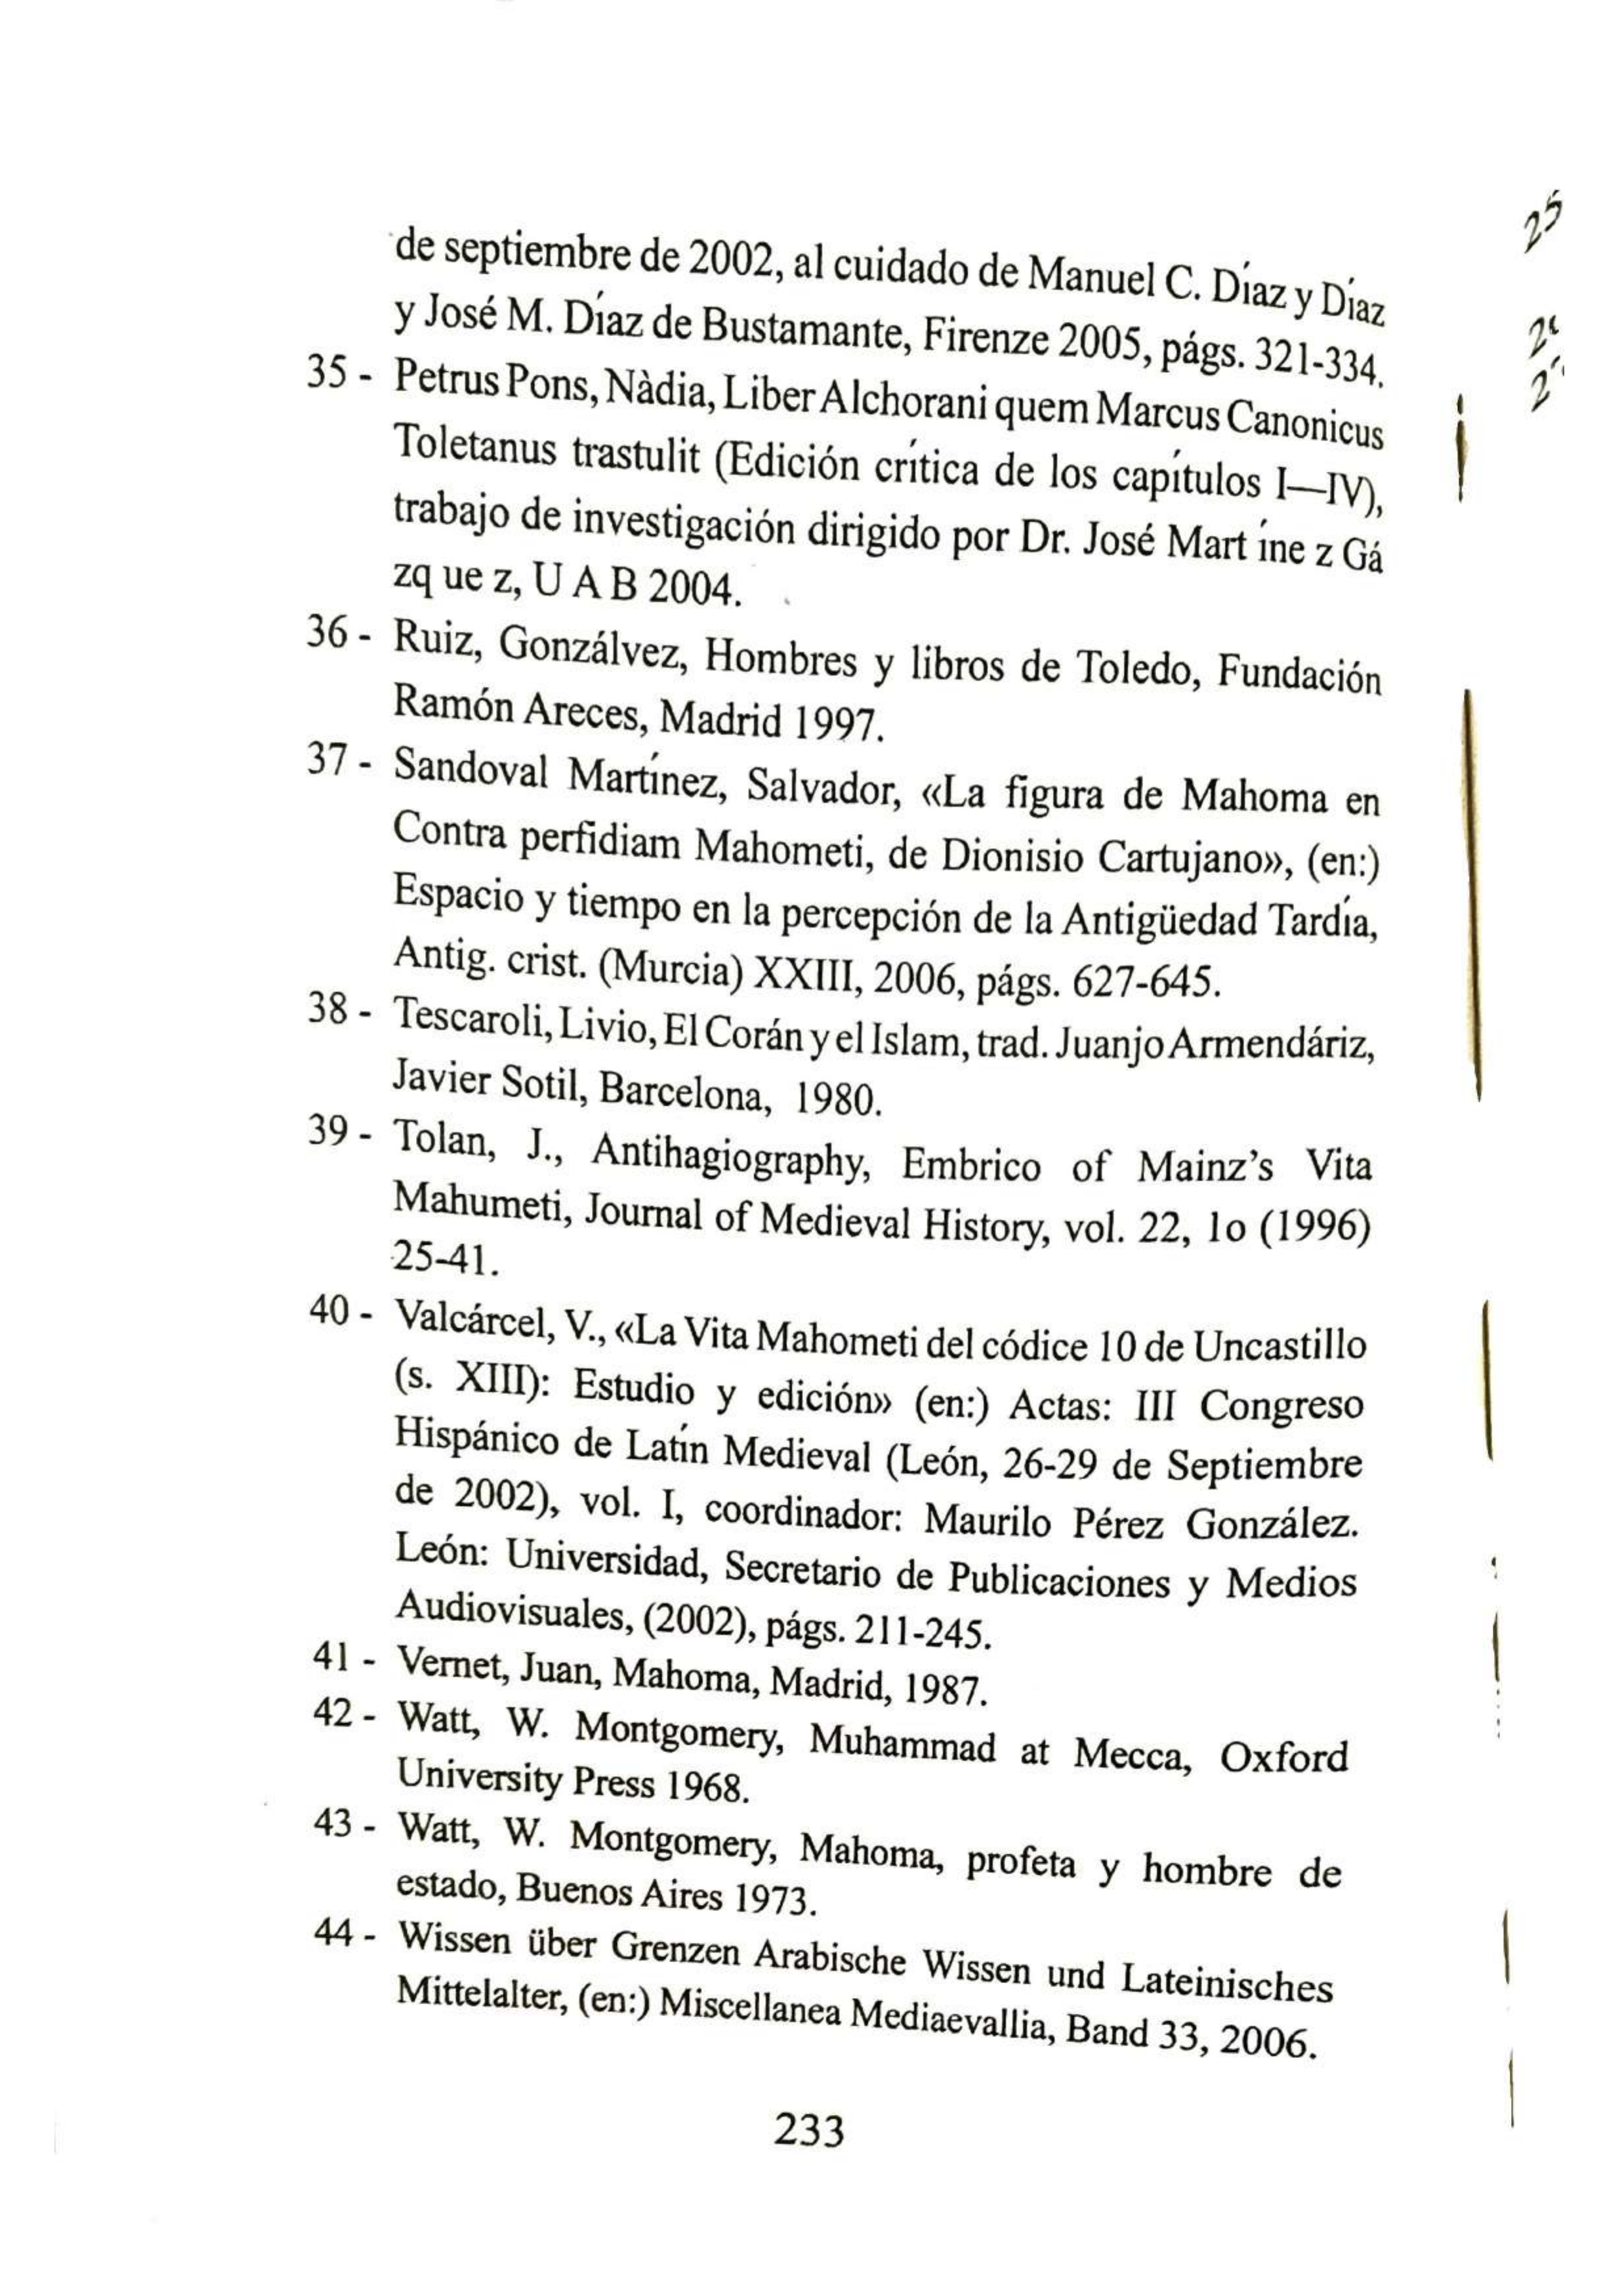 de septiembre de 2002, al cuidado de Manuel C. Díaz y Díaz
y José M. Díaz de Bustamante, Firenze 2005, págs. 321-334.
35 - Petrus Pons, Nàdia, Liber Alchorani quem Marcus Canonicus
Toletanus trastulit (Edición crítica de los capítulos I—IV),
trabajo de investigación dirigido por Dr. José Mart íne z Gá
zq ue z, U A B 2004.
36 - Ruiz, Gonzálvez, Hombres y libros de Toledo, Fundación
Ramón Areces, Madrid 1997.
37 - Sandoval Martínez, Salvador, «La figura de Mahoma en
Contra perfidiam Mahometi, de Dionisio Cartujano», (en:)
Espacio y tiempo en la percepción de la Antigüedad Tardía,
Antig. crist. (Murcia) XXIII, 2006, págs. 627-645.
38 - Tescaroli, Livio, El Corán y el Islam, trad. Juanjo Armendáriz,
Javier Sotil, Barcelona, 1980.
39 - Tolan, J., Antihagiography, Embrico of Mainz's Vita
Mahumeti, Journal of Medieval History, vol. 22, 1o (1996)
25-41.
40 - Valcárcel, V., «La Vita Mahometi del códice 10 de Uncastillo
(s. XIII): Estudio y edición» (en:) Actas: III Congreso
Hispánico de Latín Medieval (León, 26-29 de Septiembre
de 2002), vol. I, coordinador: Maurilo Pérez González.
León: Universidad, Secretario de Publicaciones y Medios
Audiovisuales, (2002), págs. 211-245.
41 - Vernet, Juan, Mahoma, Madrid, 1987.
42 - Watt, W. Montgomery, Muhammad at Mecca, Oxford
University Press 1968.
43 - Watt, W. Montgomery, Mahoma, profeta y hombre de
estado, Buenos Aires 1973.
44 - Wissen über Grenzen Arabische Wissen und Lateinisches
Mittelalter, (en:) Miscellanea Mediaevallia, Band 33, 2006.
233
25